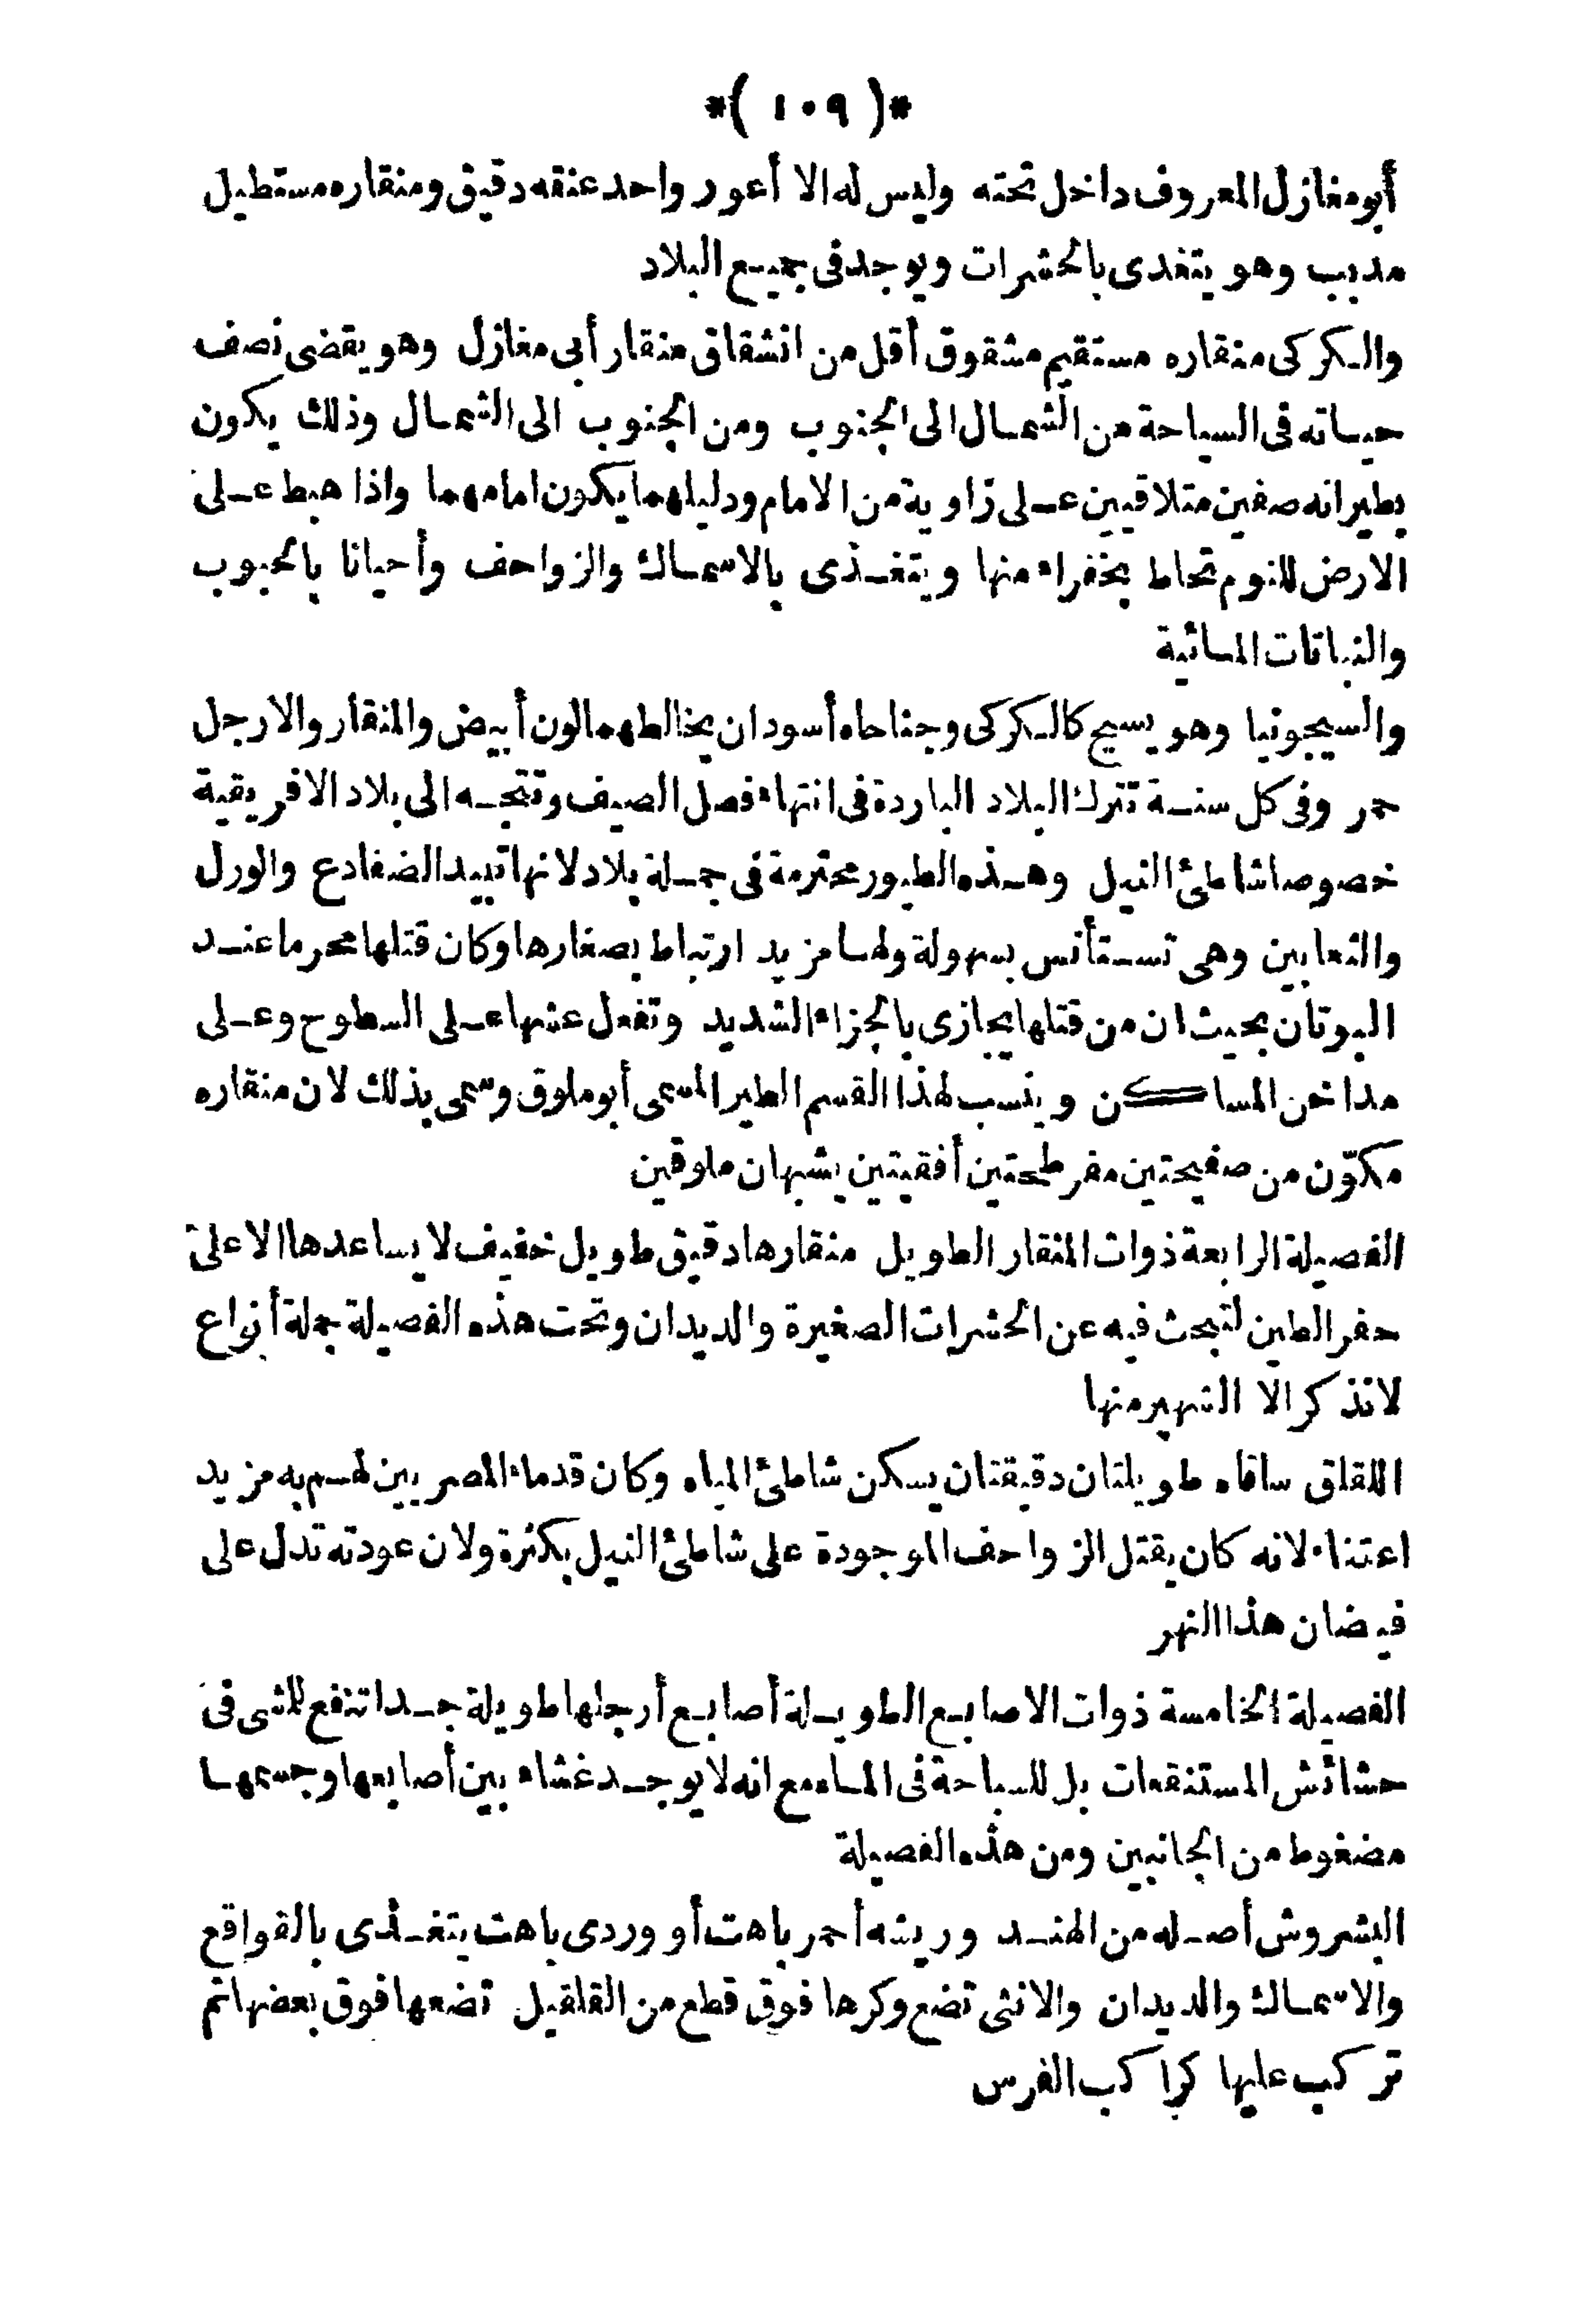 *( ١٠٩ )*
أبومغازل المعروف داخل تحته وليس له الا أعور واحد عنقه دقيق ومنقاره مستطيل
مدبب وهو يتغدى بالحشرات ويوجد فى جميع البلاد
والكركى منقاره مستقيم مشقوق أقل من انشقاق منقار أبى مغازل وهو يقضى نصف
حياته فى السياحة من الشمال الى الجنوب ومن الجنوب الى الشمال وذلك يكون
بطيرانه صفين متلاقيين على زاوية من الامام ودليلهما يكون امامهما واذا هبط على
الارض للنوم تحاط بخفراء منها ويتغذى بالاسماك والزواحف وأحيانا بالحبوب
والنباتات المائية
والسيجونيا وهو يسيح كالكركى وجناحاه أسودان يخالطهما لون أبيض والمنقار والارجل
حمر وفى كل سنة تترك البلاد الباردة فى انتهاء فصل الصيف وتتجه الى بلاد الافريقية
خصوصا شاطئ النيل وهذه الطيور محترمة فى جملة بلاد لانها تبيد الضفادع والورل
والثعابين وهى تستأنس بسهولة ولها مزيد ارتباط بصغارها وكان قتلها محرما عند
اليونان بحيث ان من قتلها يجازى بالجزاء الشديد وتفعل عشها على السطوح وعلى
مداخن المساكن وينسب لهذا القسم الطير المسمى أبوملوق وسمى بذلك لان منقاره
مكوّن من صفيحتين مفرطحتين أفقيتين يشبهان ملوقين
الفصيلة الرابعة ذوات المنقار الطويل منقارها دقيق طويل خفيف لا يساعدها الا على
حفر الطين لتبحث فيه عن الحشرات الصغيرة والديدان وتحت هذه الفصيلة جملة أنواع
لانذكر الا الشهير منها
اللقلق ساقاه طويلتان دقيقتان يسكن شاطئ المياه وكان قدماء المصريين لهم به مزيد
اعتناء لانه كان يقتل الزواحف الموجودة على شاطئ النيل بكثرة ولان عودته تدل على
فيضان هذا النهر
الفصيلة الخامسة ذوات الاصابع الطويلة أصابع أرجلها طويلة جدا تنفع للمشى فى
حشائش المستنقعات بل للسباحة فى الماء مع انه لا يوجد غشاء بين أصابعها وجسمها
مضغوط من الجانبين ومن هذه الفصيلة
البشروش أصله من الهند وريشه أحمر باهت أو وردى باهت يتغذى بالقواقع
والاسماك والديدان والانثى تضع وكرها فوق قطع من القلاقيل تضعها فوق بعضها ثم
تركب عليها كراكب الفرس